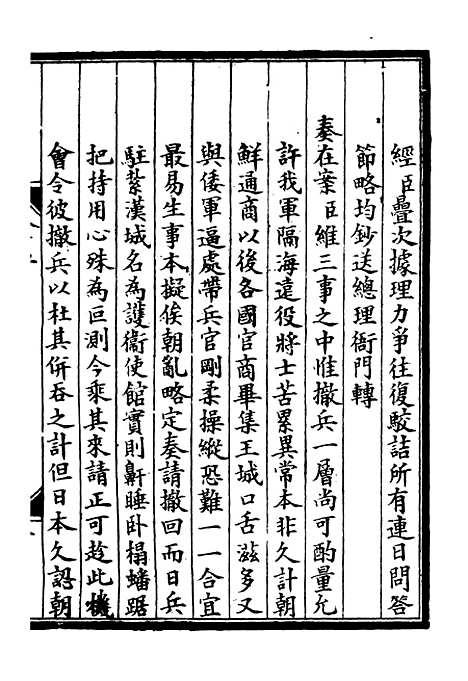 經臣疊次據理力爭往復駮詰所有連日問答
節略均鈔送總理衙門轉
奏在案臣維三事之中惟撤兵一層尚可酌量允
許我軍隔海遠役將士苦累異常本非久計朝
鮮通商以後各國官商畢集王城口舌滋多又
與倭軍逼處帶兵官剛柔操縱恐難一一合宜
最易生事本擬俟朝亂略定奏請撤回而日兵
駐紮漢城名為護衞使館實則鼾睡臥榻蟠踞
把持用心殊為叵測今乘其來請正可趁此機
會令彼撤兵以杜其併吞之計但日本久認朝